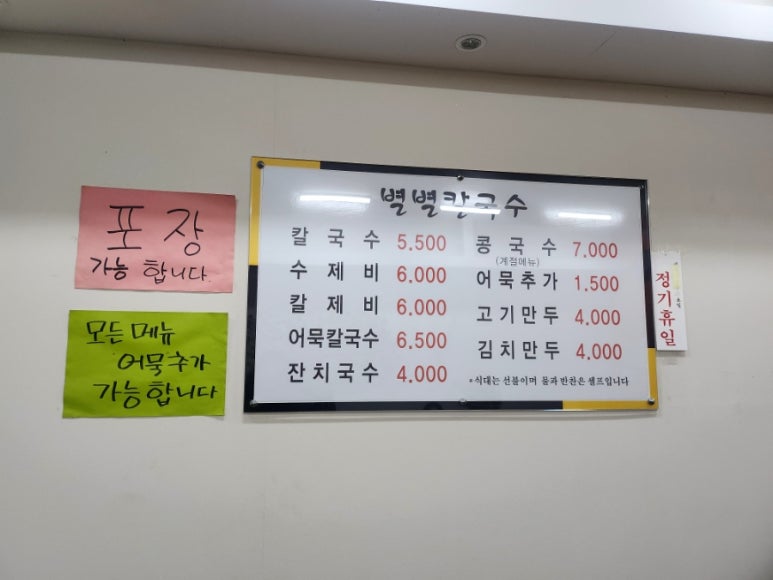 포장
가능 합니다.
모든 메뉴
어묵추가
가능합니다
별별칼국수
칼국수 5.500
수제비 6.000
칼제비 6.000
어묵칼국수 6.500
잔치국수 4.000
콩국수 7.000
(계절메뉴)
어묵추가 1.500
고기만두 4.000
김치만두 4.000
*식대는 선불이며 물과 반찬은 셀프입니다
정기휴일